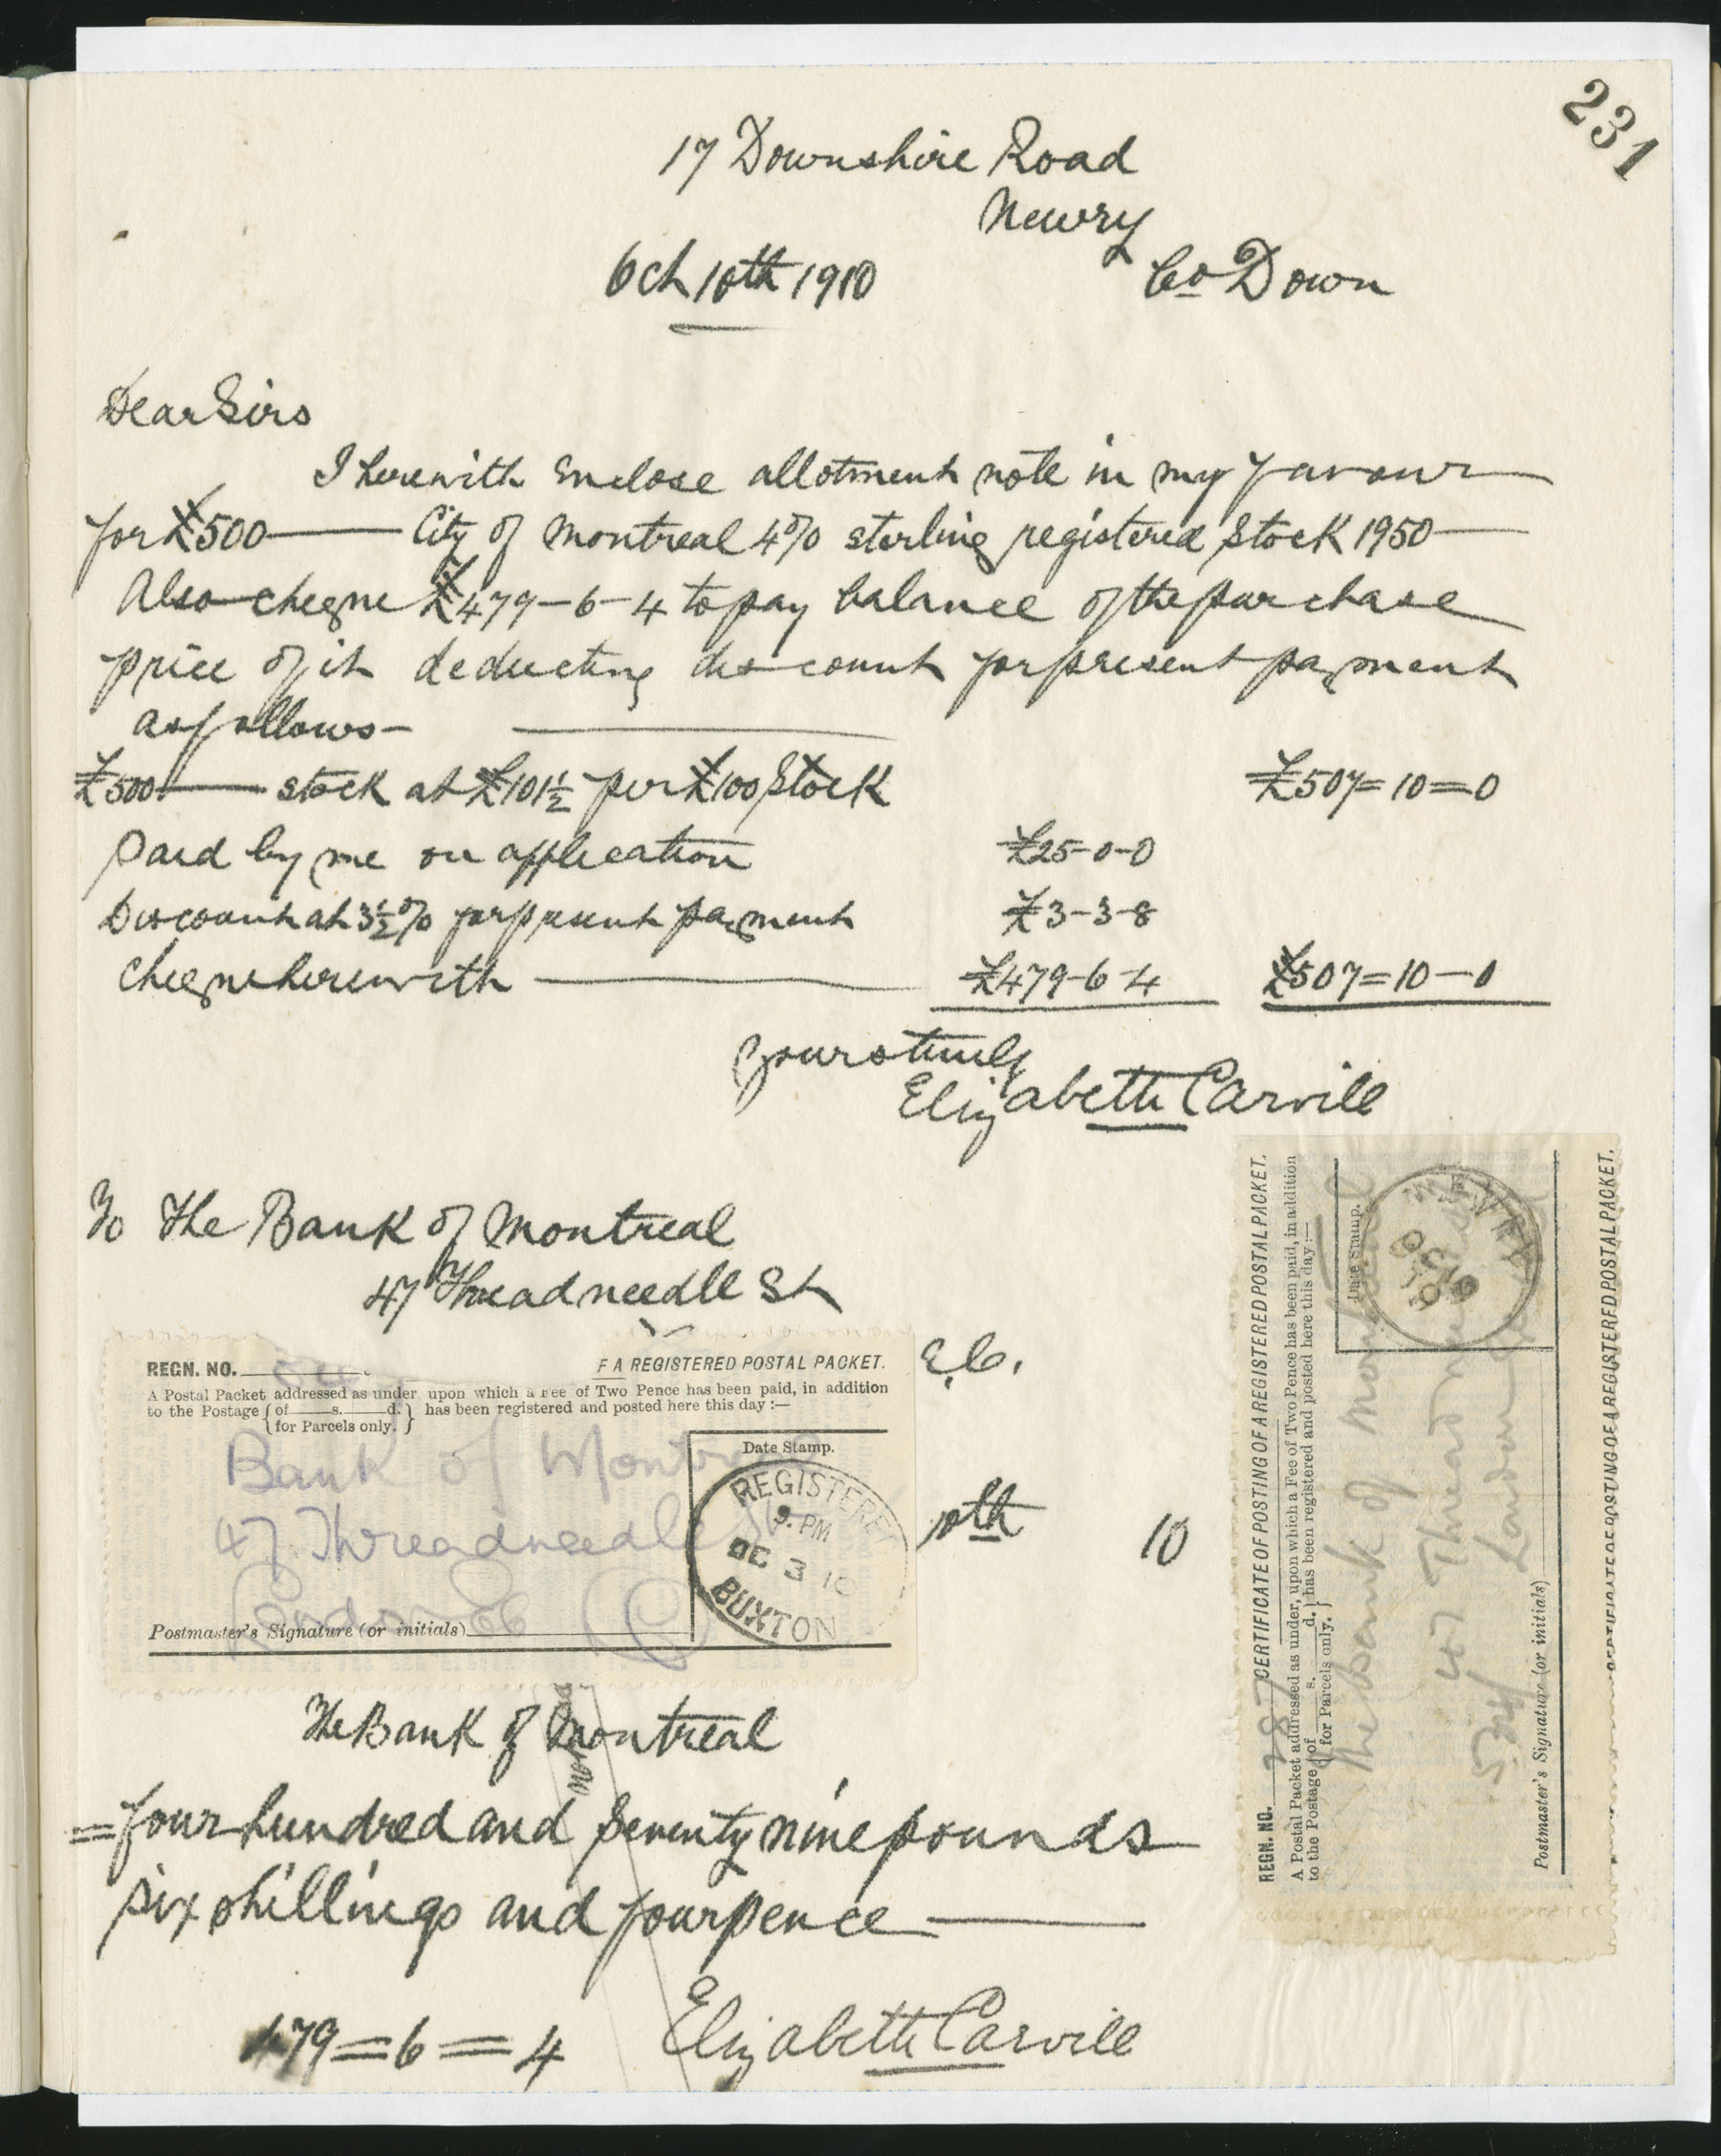 231
17 Downshire Road
Newry
Co Down
Oct 10th 1910
Dear Sirs
I herewith enclose allotment note in my favour
for £500 — City of Montreal 4% sterling registered Stock 1950 —
Also cheque £479-6-4 to pay balance of the purchase
price of it deducting discount for present payment
as follows —
£500 — stock at £101½ per £100 Stock £507=10=0
Paid by me on application £25-0-0
Discount at 3½% for present payment £3-3-8
Cheque herewith — £479-6-4 £507=10-0
Yours truly
Elizabeth Carvill
To The Bank of Montreal
47 Threadneedle St
E.C.
REGN. NO.
F A REGISTERED POSTAL PACKET.
A Postal Packet addressed as under upon which a Fee of Two Pence has been paid, in addition
to the Postage { of s. d. } has been registered and posted here this day :—
{ for Parcels only. }
Bank of Montreal
47 Threadneedle St
London EC
Date Stamp.
REGISTERED
9. PM
DE 3 10
BUXTON
Postmaster's Signature (or initials)
10th 10
The Bank of Montreal
= four hundred and seventy nine pounds
six shillings and fourpence —
479=6=4 Elizabeth Carvill
REGN. NO. 287 CERTIFICATE OF POSTING OF A REGISTERED POSTAL PACKET.
A Postal Packet addressed as under, upon which a Fee of Two Pence has been paid, in addition
to the Postage { of s. d. } has been registered and posted here this day :—
{ for Parcels only. }
The Bank of Montreal
47 Threadneedle St
London
Date Stamp.
NEWRY
OC 10
10
Postmaster's Signature (or initials)
CERTIFICATE OF POSTING OF A REGISTERED POSTAL PACKET.